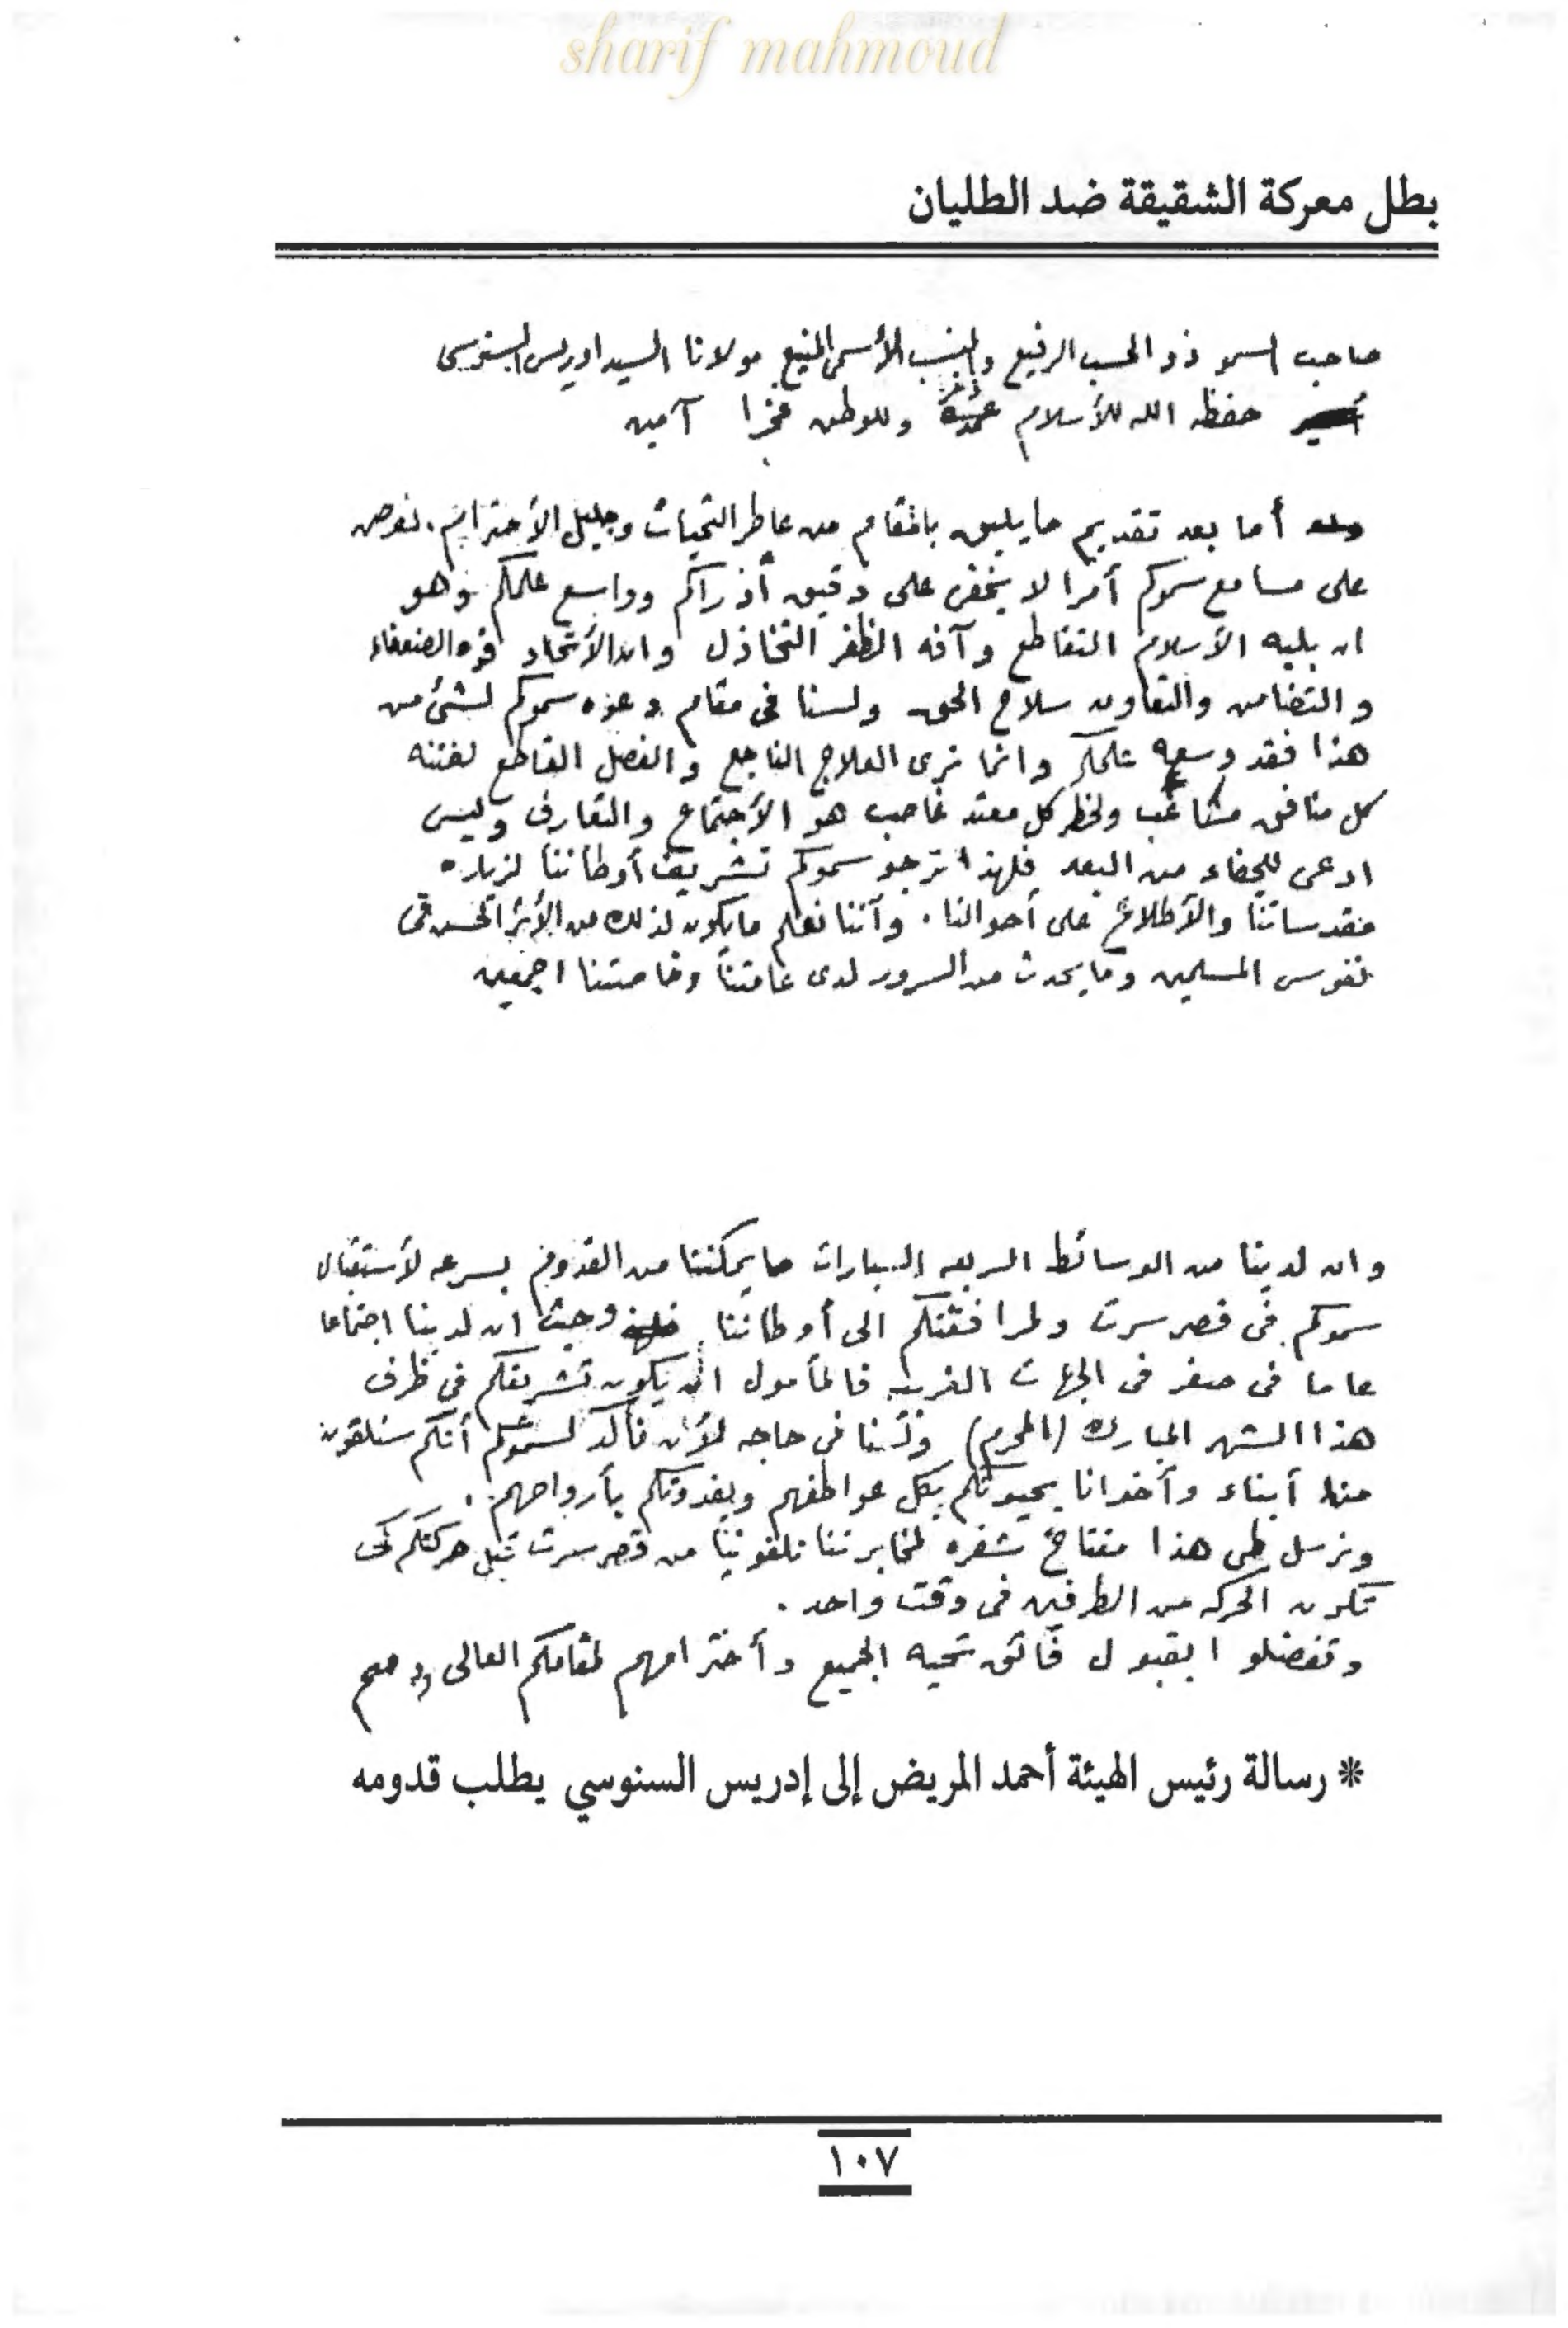 sharif mahmoud
بطل معركة الشقيقة ضد الطليان
صاحب السمو ذو الحسب الرفيع والنسب الأسمى المنيع مولانا السيد ادريس السنوسى
حفظه الله للأسلام وللوطن فخرا آمين
أما بعد تقديم ما يليق بالمقام من عاطر التحيات وجليل الأحترام . نعرض
على مسامع سموكم أمرا لا يخفى على دقيق أدراكم وواسع علمكم وهو
ان بليه الأسلام التقاطع وآفه الظفر التخاذل وان الأتحاد قوه الضعفاء
والتضامن والتعاون سلاح الحق ولسنا فى مقام دعوه سموكم لشئ من
هذا فقد وسعه علمكم وانما نرى العلاج الناجع والفصل القاطع لفتنه
كل منافق مشاغب ولخطر كل معتد غاصب هو الأجتماع والتعارف وليس
ادعى للجفاء من البعد فلهذا نرجو سموكم تشريف أوطاننا لزياره
مقدساتنا والأطلاع على أحوالنا . وأننا نعلم ما يكون لذلك من الأثر الحسن فى
نفوس المسلمين وما يحدث من السرور لدى عامتنا وخاصتنا اجمعين
وان لدينا من الوسائط السريعه السيارات ما يمكننا من القدوم بسرعه لأستقبال
سموكم فى قصر سرت ولمرافقتكم الى أوطاننا وحيث ان لدينا اجتماعا
عاما فى صفر فى الجهات الغربيه فالمأمول ان يكون تشريفكم فى ظرف
هذا الشهر المبارك (المحرم) ولسنا فى حاجه لأن نأكد لسموكم أنكم ستلقون
منا أبناء وأخوانا يحيونكم بكل عواطفهم ويفدونكم بأرواحهم .
ونرسل طى هذا مفتاح شفره لمخابرتنا تلفونيا من قصر سرت قبل حركتكم لكى
تكون الحركه من الطرفين فى وقت واحد .
وتفضلوا بقبول فائق تحيه الجميع وأحترامهم لمقامكم العالى
* رسالة رئيس الهيئة أحمد المريض إلى إدريس السنوسي يطلب قدومه
١٠٧